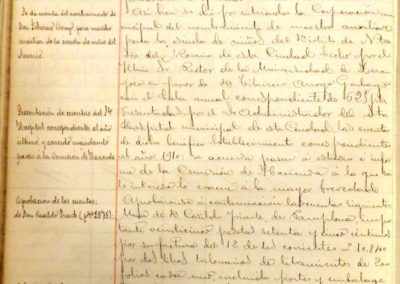 Se da cuenta del nombramiento de
Don Tiburcio Arroyo para maestro
auxiliar de la escuela de niños del
Rosario.
Presentación de cuentas del Sto
Hospital correspondientes al año
último y acuerdo mandando
pasen a la Comisión de Hacienda
Aprobación de las cuentas:
de Don Casildo Iriarte (ptas 25'75);
Así bien se dió por enterada la Corporación mu-
nicipal del nombramiento de maestro auxiliar
para la escuela de niños del Distrito de Ntra
Sra del Rosario de esta Ciudad hecho por el
Iltmo Sr. Rector de la Universidad de Zara-
goza en favor de D. Tiburcio Arroyo
con el haber anual correspondiente de 625 ptas
Presentadas por el Sr Administrador del Santo
Hospital municipal de esta Ciudad las cuentas
de dicho benéfico establecimiento correspondientes
al año 1910: se acuerda pasen a estudio e infor-
me de la Comisión de Hacienda a la que
se interesa lo evacue a la mayor brevedad.
Aprobáronse a continuación las cuentas siguientes:
Una de D. Casildo Iriarte de Pamplona impor-
tante veinticinco pesetas setenta y cinco céntimos
por su factura del 18 de los corrientes nº 10.840
por dos libros talonarios de libramientos de
folios cada uno, incluído portes y embalage